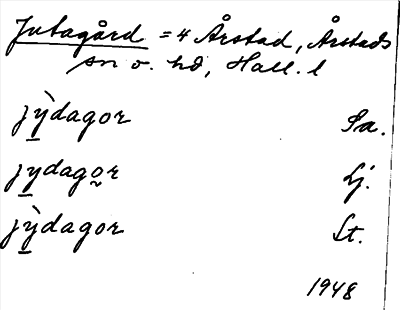 Jutagård = 4 Årstad, Årstads
sn o. hd, Hall. l
jỳ̲dagor Sa.
jy̲dago̰r Lj.
jỳ̲dagor St.
1948